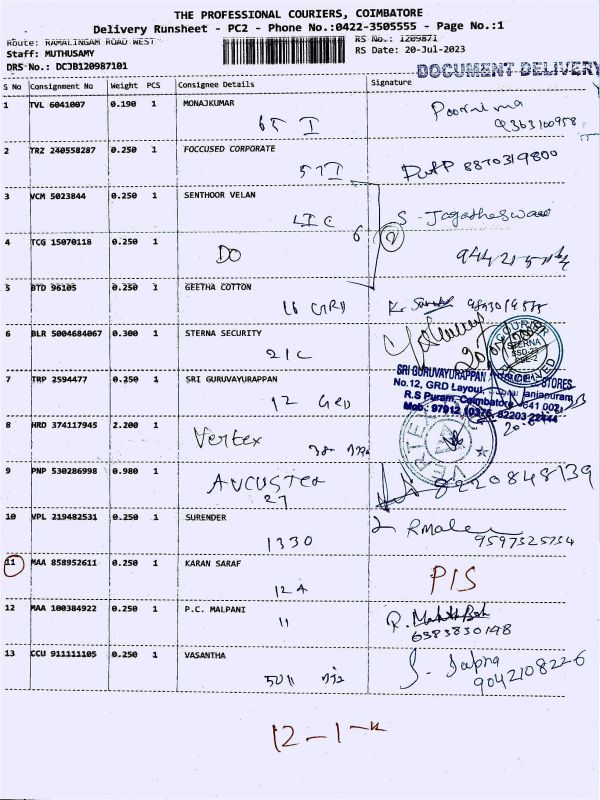 THE PROFESSIONAL COURIERS, COIMBATORE
Delivery Runsheet - PC2 - Phone No.:0422-3505555 - Page No.:1
Route: RAMALINGAM ROAD WEST RS No.: 1209871
Staff: MUTHUSAMY RS Date: 20-Jul-2023
DRS No.: DCJB120987101
DOCUMENT DELIVERY
S No Consignment No Weight PCS Consignee Details Signature
1 TVL 6041007 0.190 1 MONAJKUMAR
65 I
2 TRZ 240558287 0.250 1 FOCCUSED CORPORATE
57I 8870319800
3 VCM 5023844 0.250 1 SENTHOOR VELAN
LIC 6 2 S. Jagatheswaran
4 TCG 15070118 0.250 1
DO
5 BTD 96105 0.250 1 GEETHA COTTON
16 GRD
6 BLR 5004684067 0.300 1 STERNA SECURITY
21C
COURIER
STERNA
RECEIVED
7 TRP 2594477 0.250 1 SRI GURUVAYURAPPAN
12 GRD
SRI GURUVAYURAPPAN STORES
No.12, GRD Layout,
R.S Puram, Coimbatore - 641 002
Mob.: 97912 10376, 82203 22444
8 HRD 374117945 2.200 1
Vertex
VERTEX
9 PNP 530286998 0.980 1
AUGUSTEA
27
8220848139
10 VPL 219482531 0.250 1 SURENDER
1330
9597325734
11 MAA 858952611 0.250 1 KARAN SARAF
12A P/S
12 MAA 100384922 0.250 1 P.C. MALPANI
11
6383830148
13 CCU 911111105 0.250 1 VASANTHA
50
9042108226
12-1-